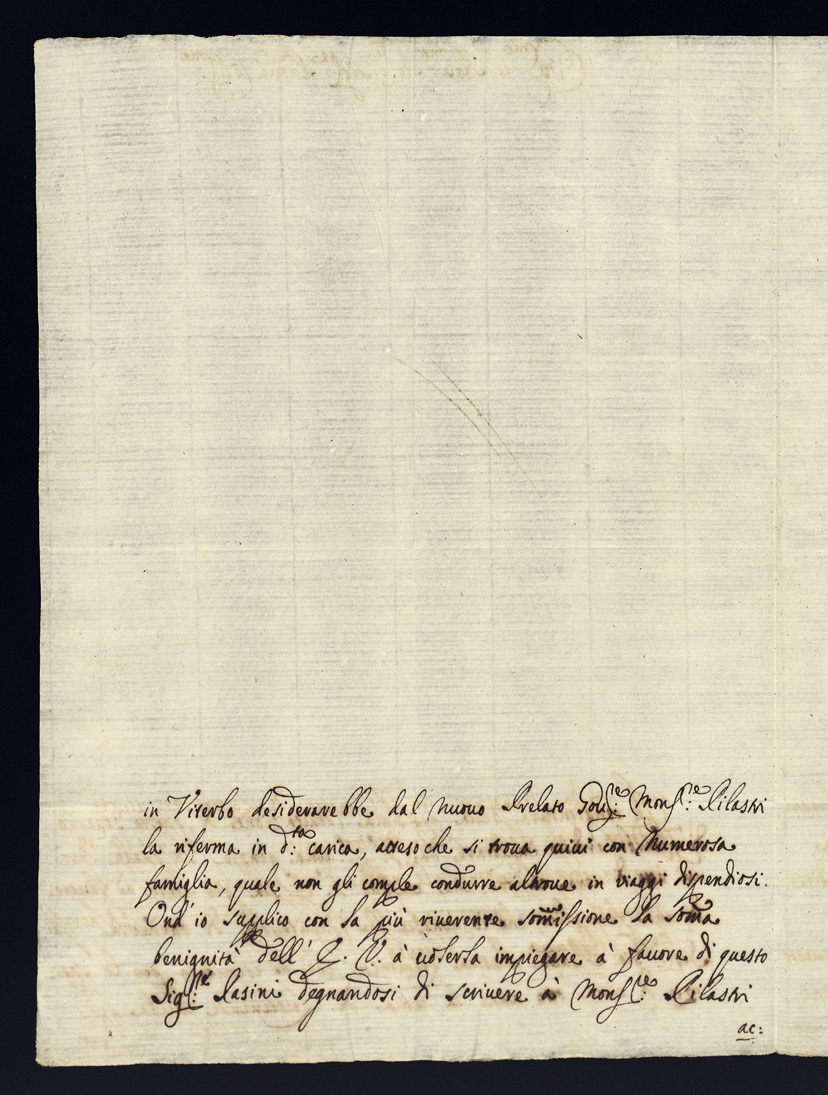 in Viterbo desiderarebbe dal nuovo Prelato Gou.re Mons.re Pilastri
la riferma in d.ta carica, atteso che si troua quiui con numerosa
famiglia, quale non gli comple condurre altroue in viaggi dispendiosi.
Ond' io supplico con la più riuerente somissione la soma
benignità dell' E. V. à uolersa impiegare à fauore di questo
Sig.re Pasini degnandosi di scriuere à Mons.re Pilastri
ac: